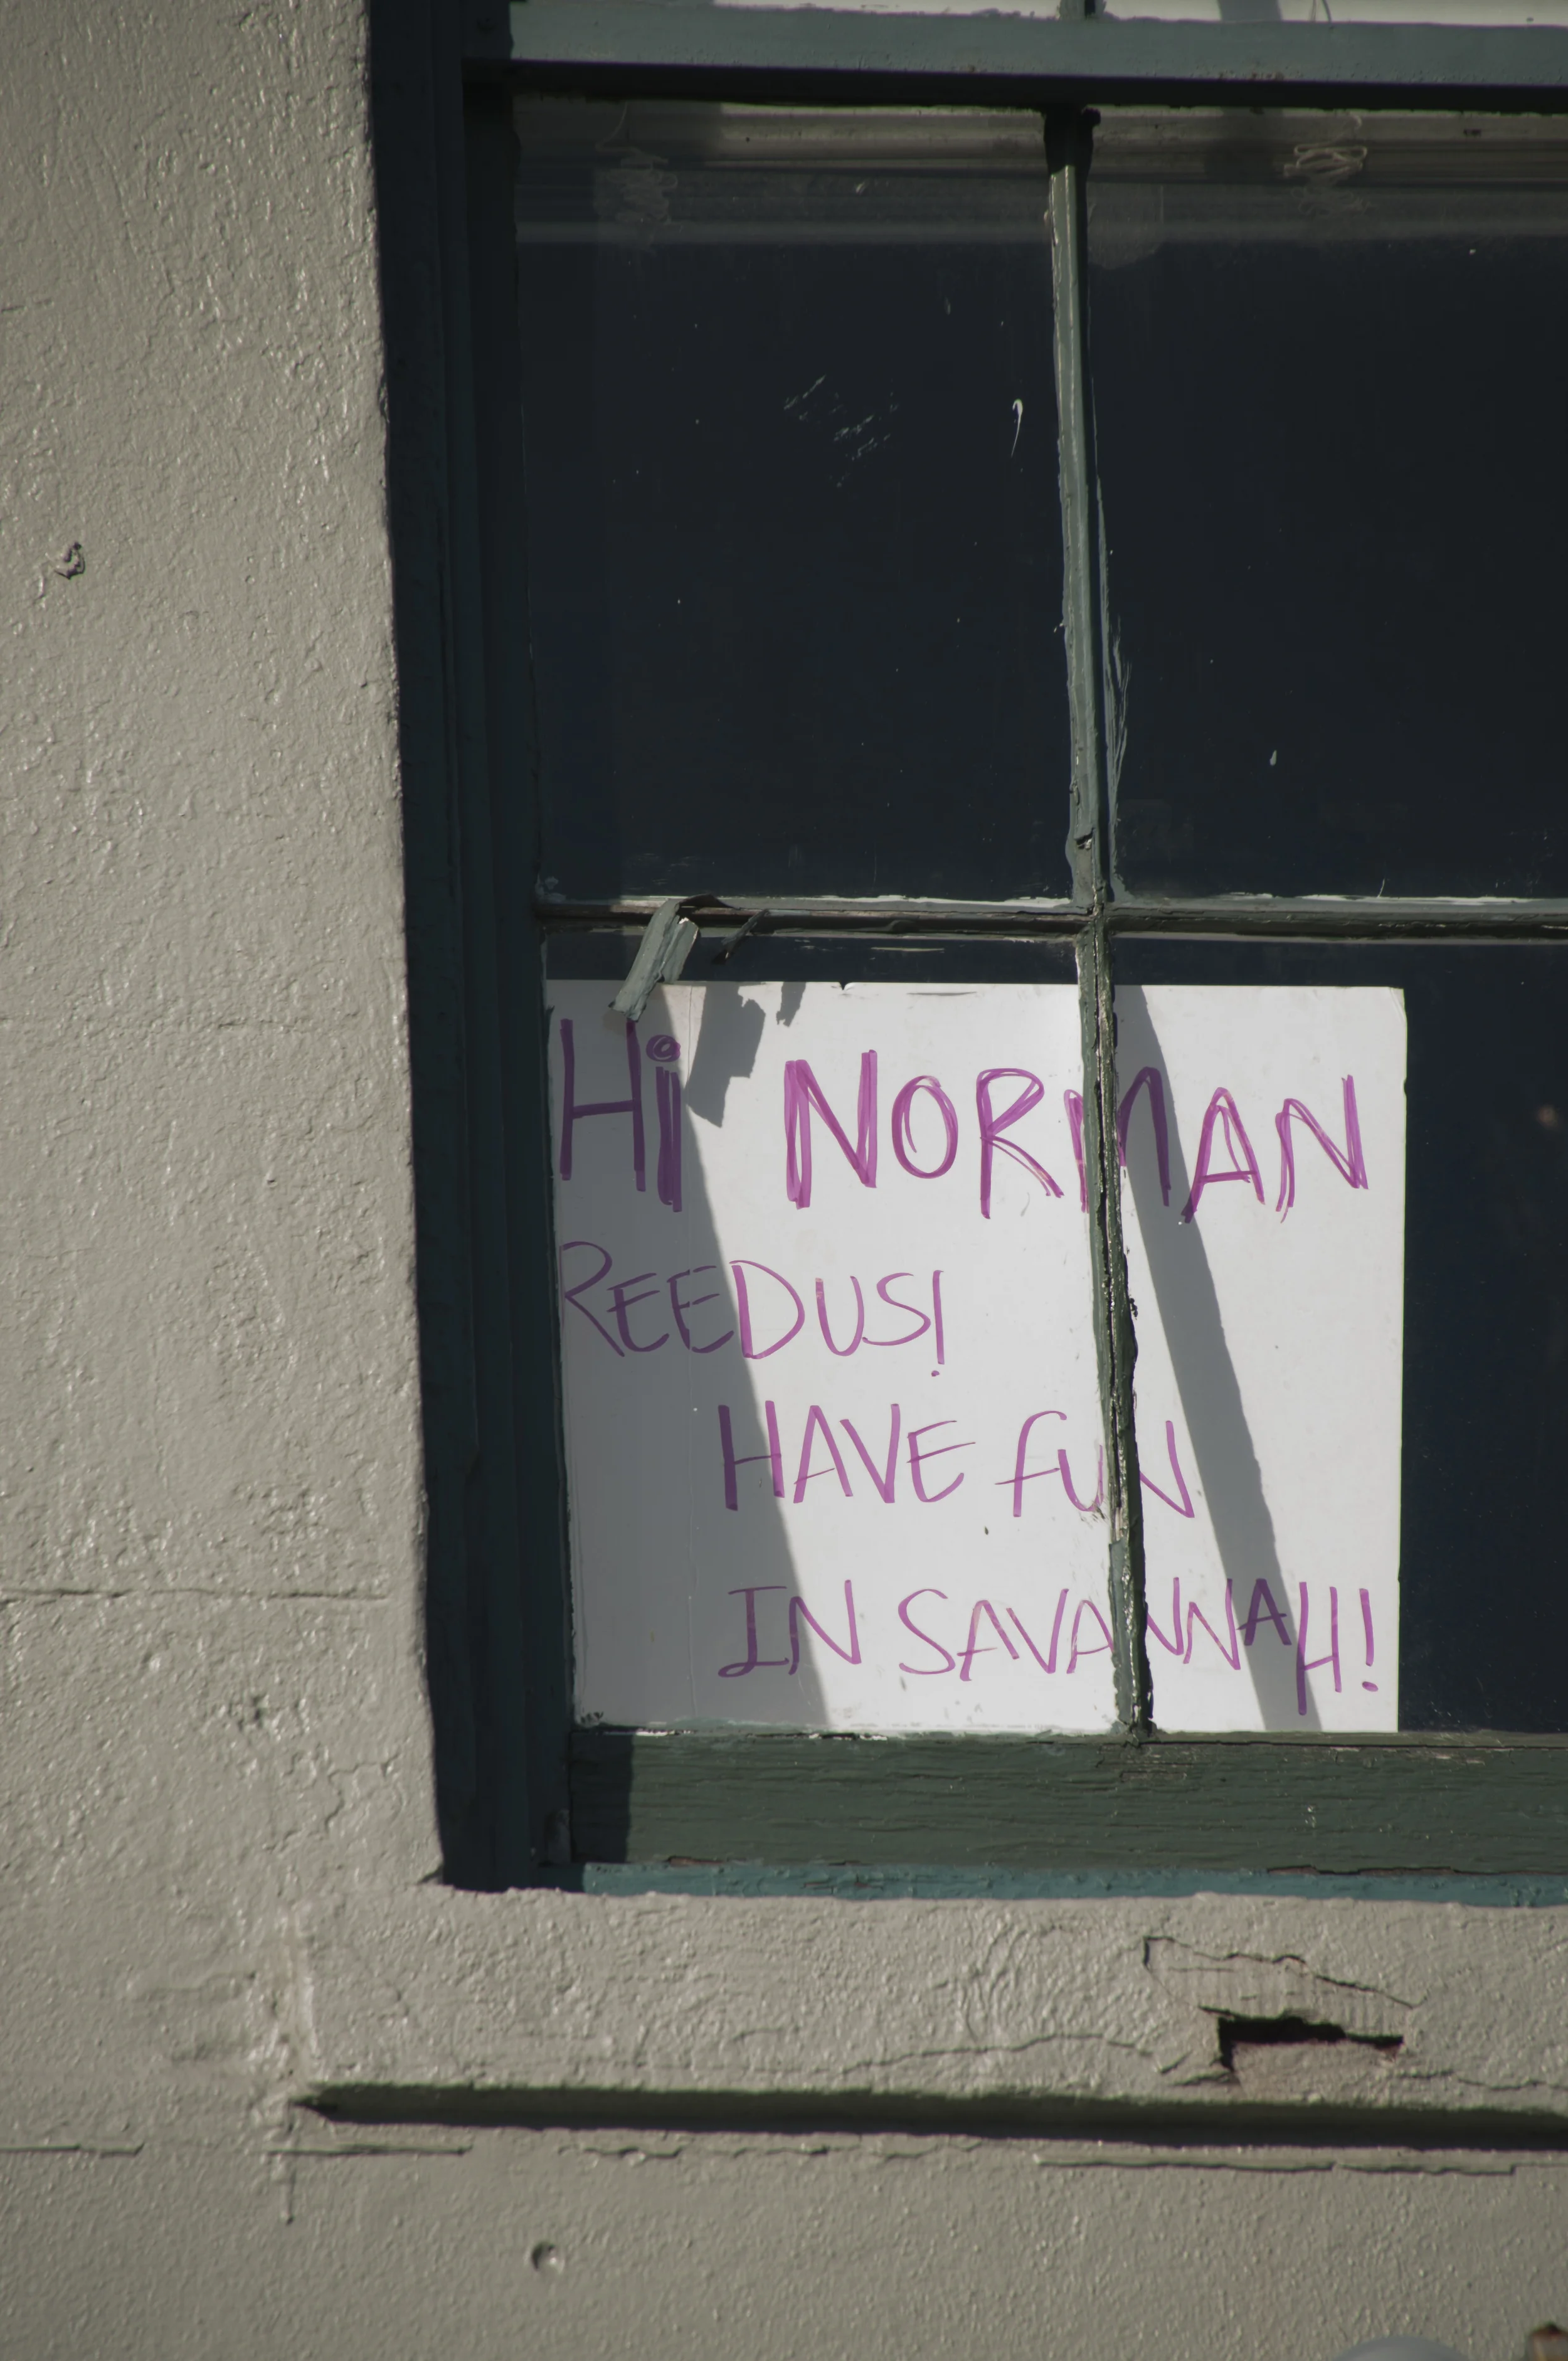 Hi NORMAN
REEDUS!
HAVE FUN
IN SAVANNAH!